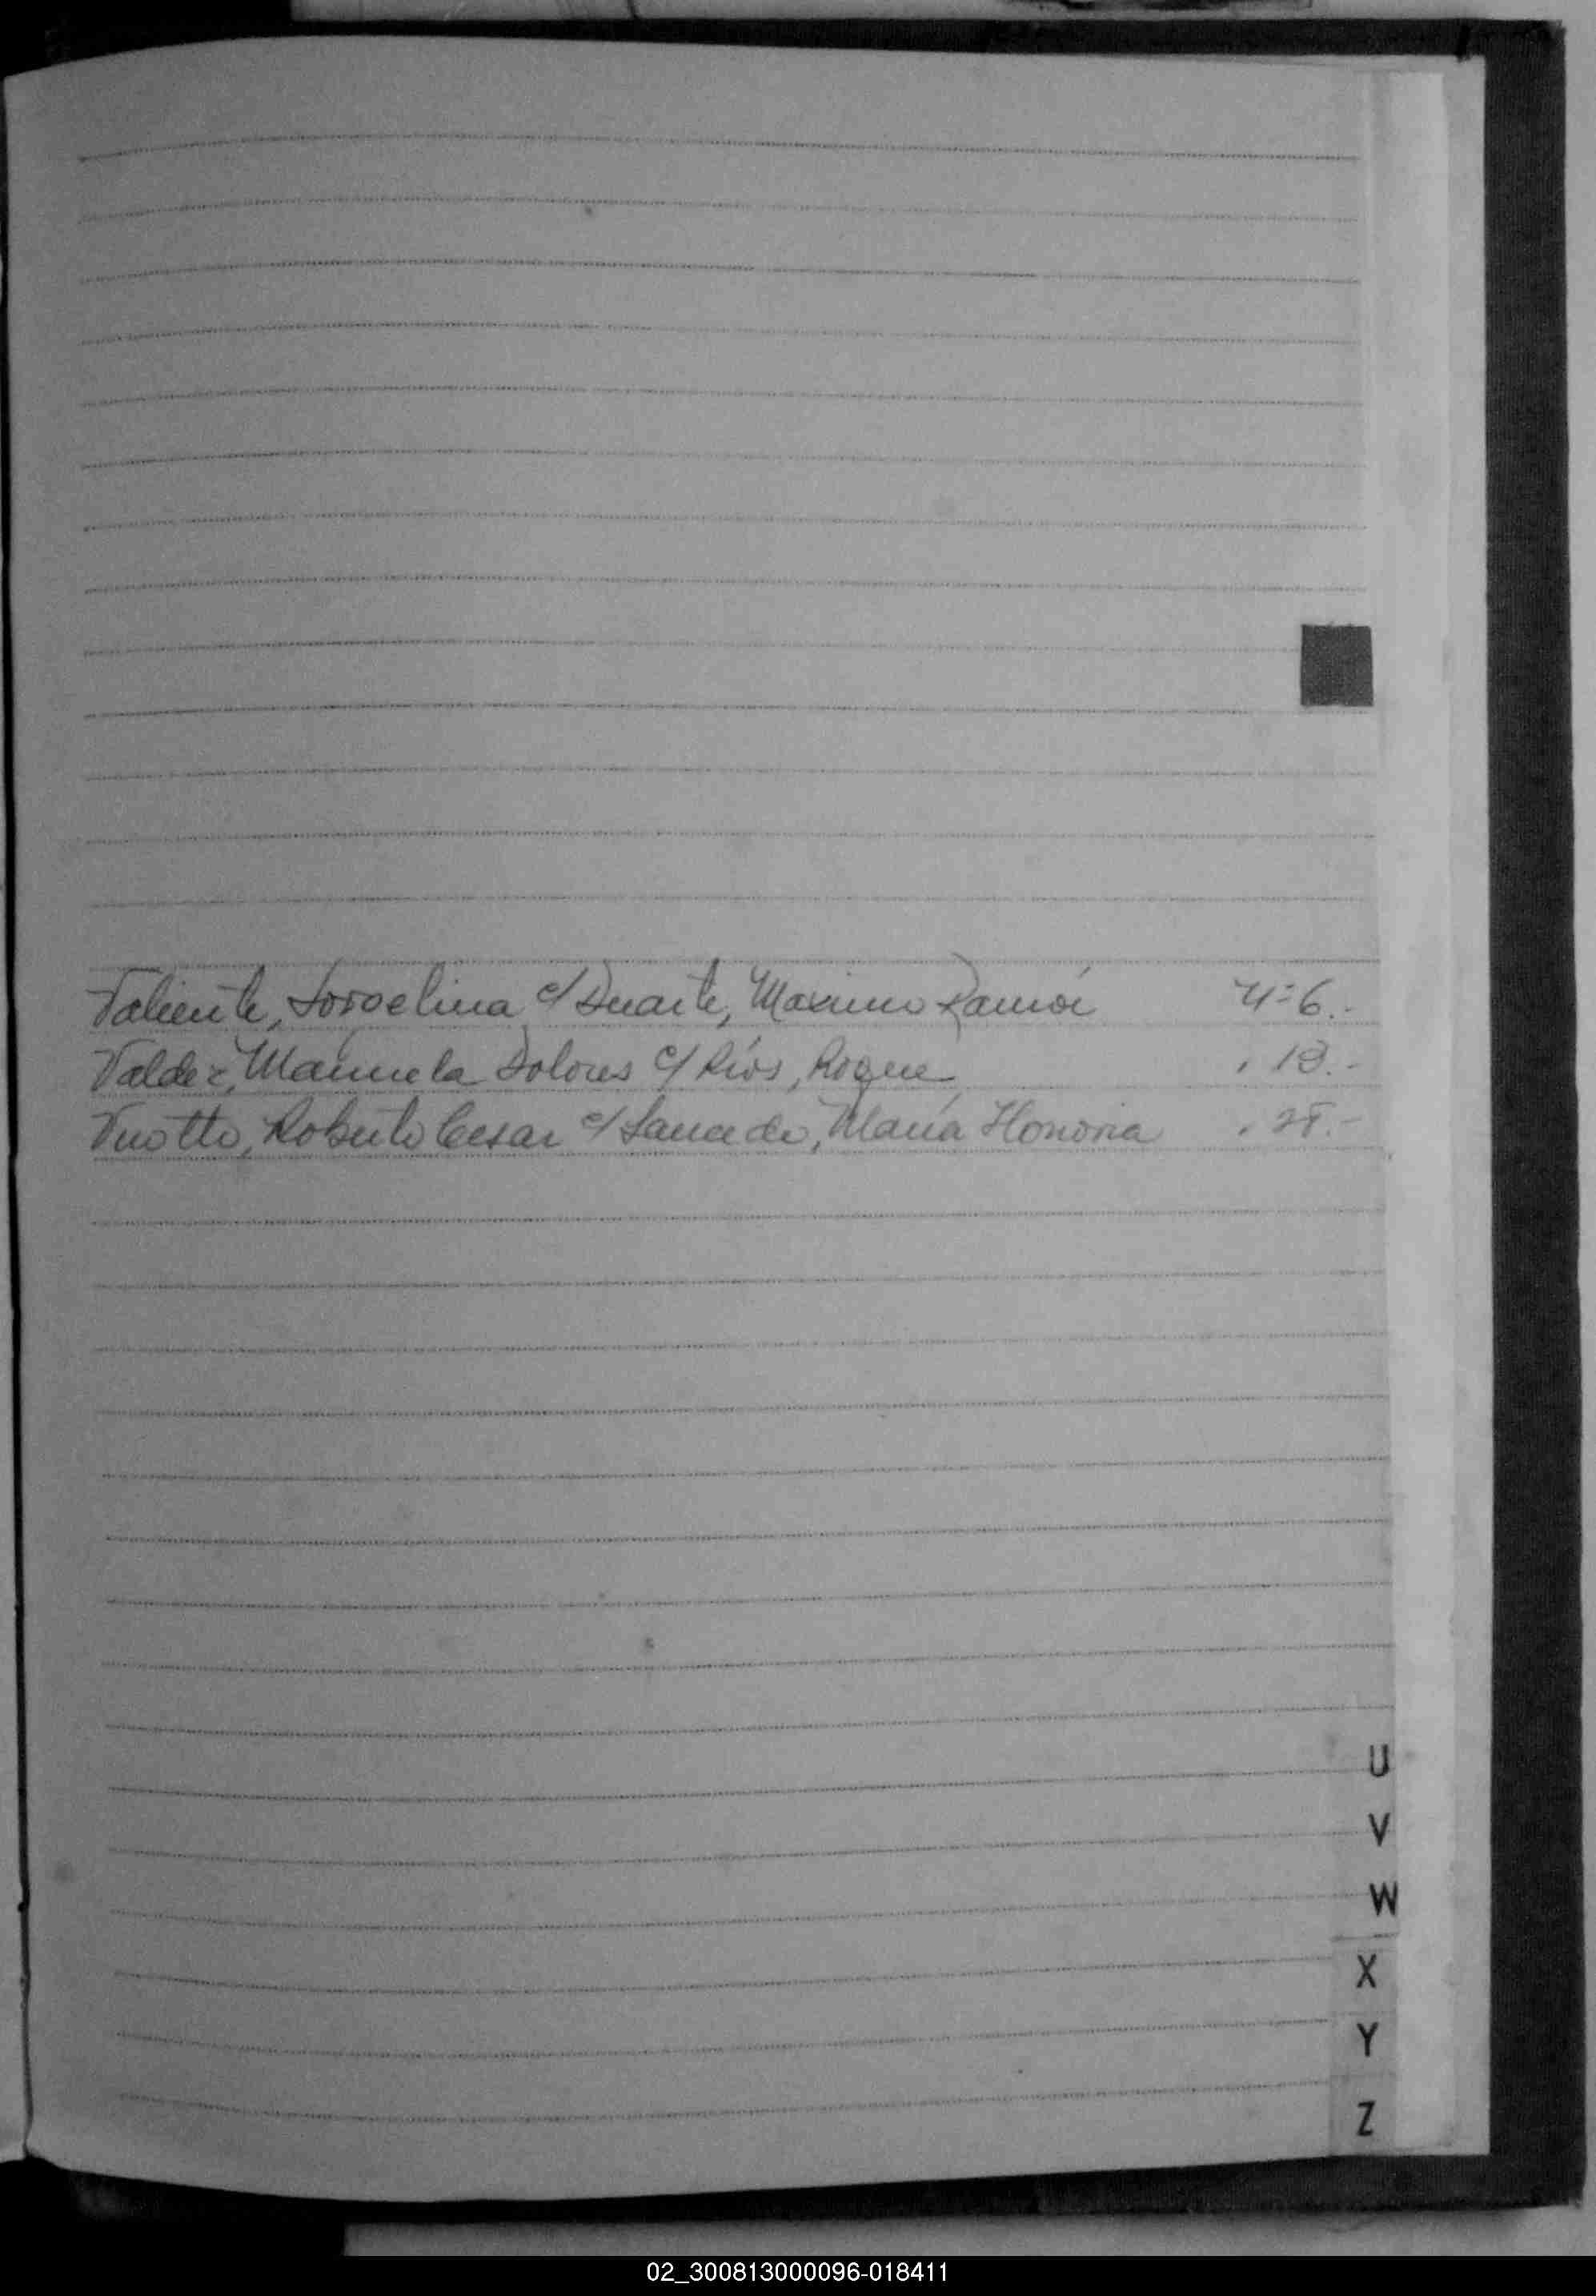 Valiente, c/ Duarte, Maximo Ramón Nº 6.-
Valdez, Manuela Dolores c/ Ríos, Roque, " 13.-
Vuotto, Roberto Cesar c/ Saucedo, María Honoria "
U
V
W
X
Y
Z
02_300813000096-018411